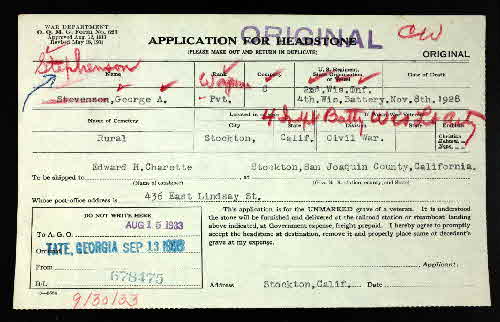 WAR DEPARTMENT
O. Q. M. G. Form No. 623
Approved Aug. 12, 1933
ORIGINAL
CW
APPLICATION FOR HEADSTONE
(PLEASE MAKE OUT AND RETURN IN DUPLICATE)
ORIGINAL
Stephenson
Name
Rank
Company
U. S. Regiment,
Date of Death
Wagoner
C
2nd. Wis. Inf.
Stevenson, George A.
Pvt.
4th. Wis. Battery,
Nov. 8th. 1928
Name of Cemetery
Located in or near
City
State
Rural
Stockton,
Calif.
Civil War.
Edward H. Charette
Stockton, San Joaquin County, California.
To be shipped to
(Name of consignee)
Whose post-office address is
436 East Lindsay St.
DO NOT WRITE HERE
AUG 15 1933
To A. G. O.
TATE, GEORGIA SEP 13 1933
From
678475
B/L
9/30/33
This application is for the UNMARKED grave of a veteran. It is understood
the stone will be furnished and delivered at the railroad station or steamboat landing
above indicated, at Government expense, freight prepaid. I hereby agree to promptly
accept the headstone at destination, remove it and properly place same at decedent's
grave at my expense.
Applicant.
Address
Stockton, Calif.
Date